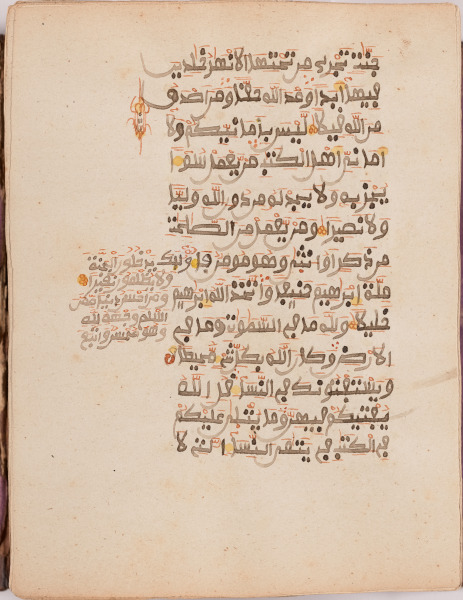 جنت تجري من تحتها الانهر خلدين
فيها ابدا وعد الله حقا ومن اصدق
من الله قيلا ليس بامانيكم ولا
اماني اهل الكتب من يعمل سوءا
يجز به ولا يجد له من دون الله وليا
ولا نصيرا ومن يعمل من الصلحت
من ذكر او انثى وهو مومن فاولئك
يدخلون الجنة
ولا يظلمون نقيرا
ومن احسن دينا ممن
اسلم وجهه لله
وهو محسن واتبع
ملة ابرهيم حنيفا واتخذ الله ابرهيم
خليلا ولله ما في السموت وما في
الارض وكان الله بكل شيء محيطا
ويستفتونك في النساء قل الله
يفتيكم فيهن وما يتلى عليكم
في الكتب في يتمى النساء التي لا